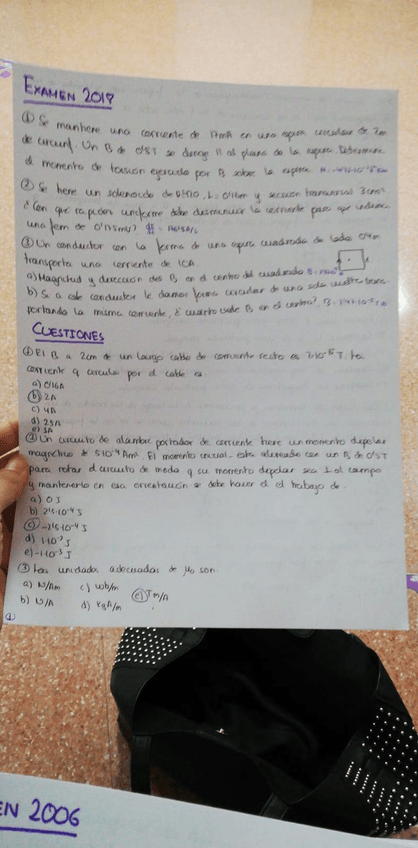 EXAMEN 2019
① Se mantiene una corriente de 17mA en una espira circular de 2m
de circunf. Un B de 0'8T se dirige // al plano de la espira. Determine
el momento de torsión ejercido por B sobre la espira
② Se tiene un solenoide de L= 0'16m y sección transversal 3cm²
¿Con que rapidez uniforme debe disminuir la corriente para que induzca
una fem de 0'175mV?
③ Un conductor con la forma de una espira cuadrada de lado 0'4m
transporta una corriente de 10A
a) Magnitud y dirección del B en el centro del cuadrado
b) Si a este conductor le damos forma circular de una sola vuelta trans-
portando la misma corriente, ¿cuanto vale B en el centro?
CUESTIONES
① El B a 2cm de un largo cable de corriente recto es T. La
corriente q circula por el cable es
a) 0'16A
b) 2A
c) 4A
d) 25A
e) 5A
② Un circuito de alambre portador de corriente tiene un momento dipolar
magnético de 5·10⁻⁴Am². El momento inicial está alineado con un B de 0'5T
para rotar el circuito de modo q su momento dipolar sea ⊥ al campo
y mantenerlo en esa orientación se debe hacer el trabajo de
a) 0 J
b) 2'5·10⁻⁴ J
c) -2'5·10⁻⁴ J
d) 1·10⁻³ J
e) -1·10⁻³ J
③ Las unidades adecuadas de μ₀ son
a) N/Am c) Wb/m e) Tm/A
b) N/A d) KgA/m
①
EN 2006